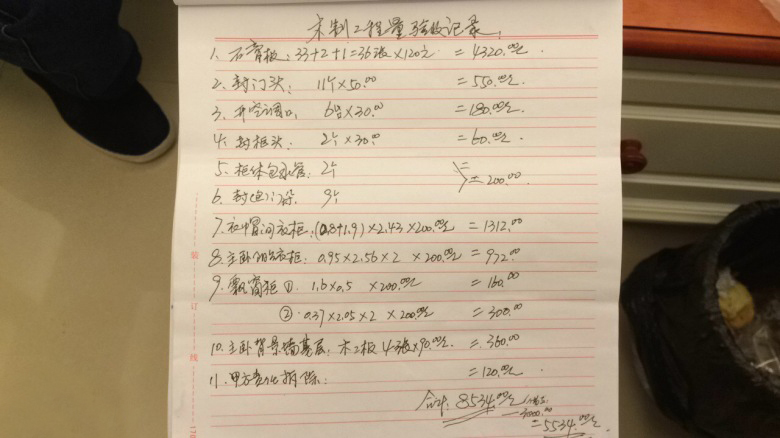 木制工程量验收记录
1、石膏板：33+2+1=36张×120元 =4320.00元.
2、封门头： 11个×50.00 =550.00元.
3、开空调口， 6台×30.00 =180.00元.
4、封柜头： 2个×30.00 =60.00元.
5、柜体包水管： 2个
=200.00
6、封 9个
7、衣帽间衣柜：(0.8+1.9)×2.43×200.00元 =1312.00
8、主卧 衣柜：0.95×2.56×2 ×200.00元 =972.00
9、飘窗柜 ① 1.6×0.5 ×200.00元 =160.00
② 0.37×2.05×2 ×200.00元 =300.00
10、主卧背景墙基层：木工板 4张×90.00元. =360.00
11、甲方变化拆除： =120.00元
合计：8534.00元
-3000.00
=5534.00元
装
订
线